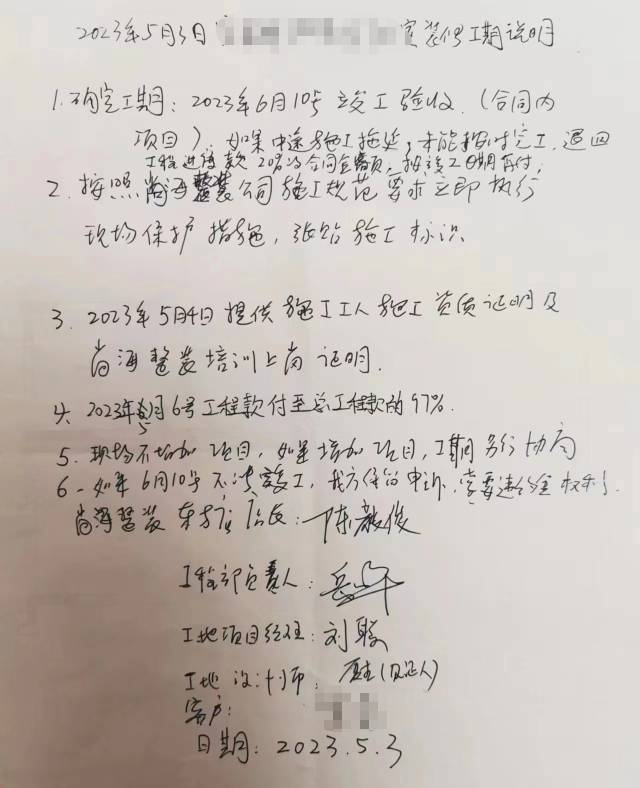 2023年5月3日 室装修工期说明
1.确定工期：2023年6月10号竣工验收.（合同内
项目），如果中途施工拖延，未能按时完工，退回
工程进度款20%的合同金额，按竣工日期再付；
2、按照尚海整装公司施工规范要求立即执行
现场保护措施，张贴施工标识
3. 2023年5月4日提供施工工人施工资质证明及
尚海整装培训上岗证明.
4. 2023年5月6号工程款付至总工程款的97%.
5. 现场不增加项目，如果增加项目，工期另行协商
6. 如果6月10号不决竣工，我方保留申诉，索要违约金权利.
尚海整装 店长：陈毅俊
工程部负责人：
工地项目经理：刘聪
工地设计师： （见证人）
客户：
日期：2023.5.3